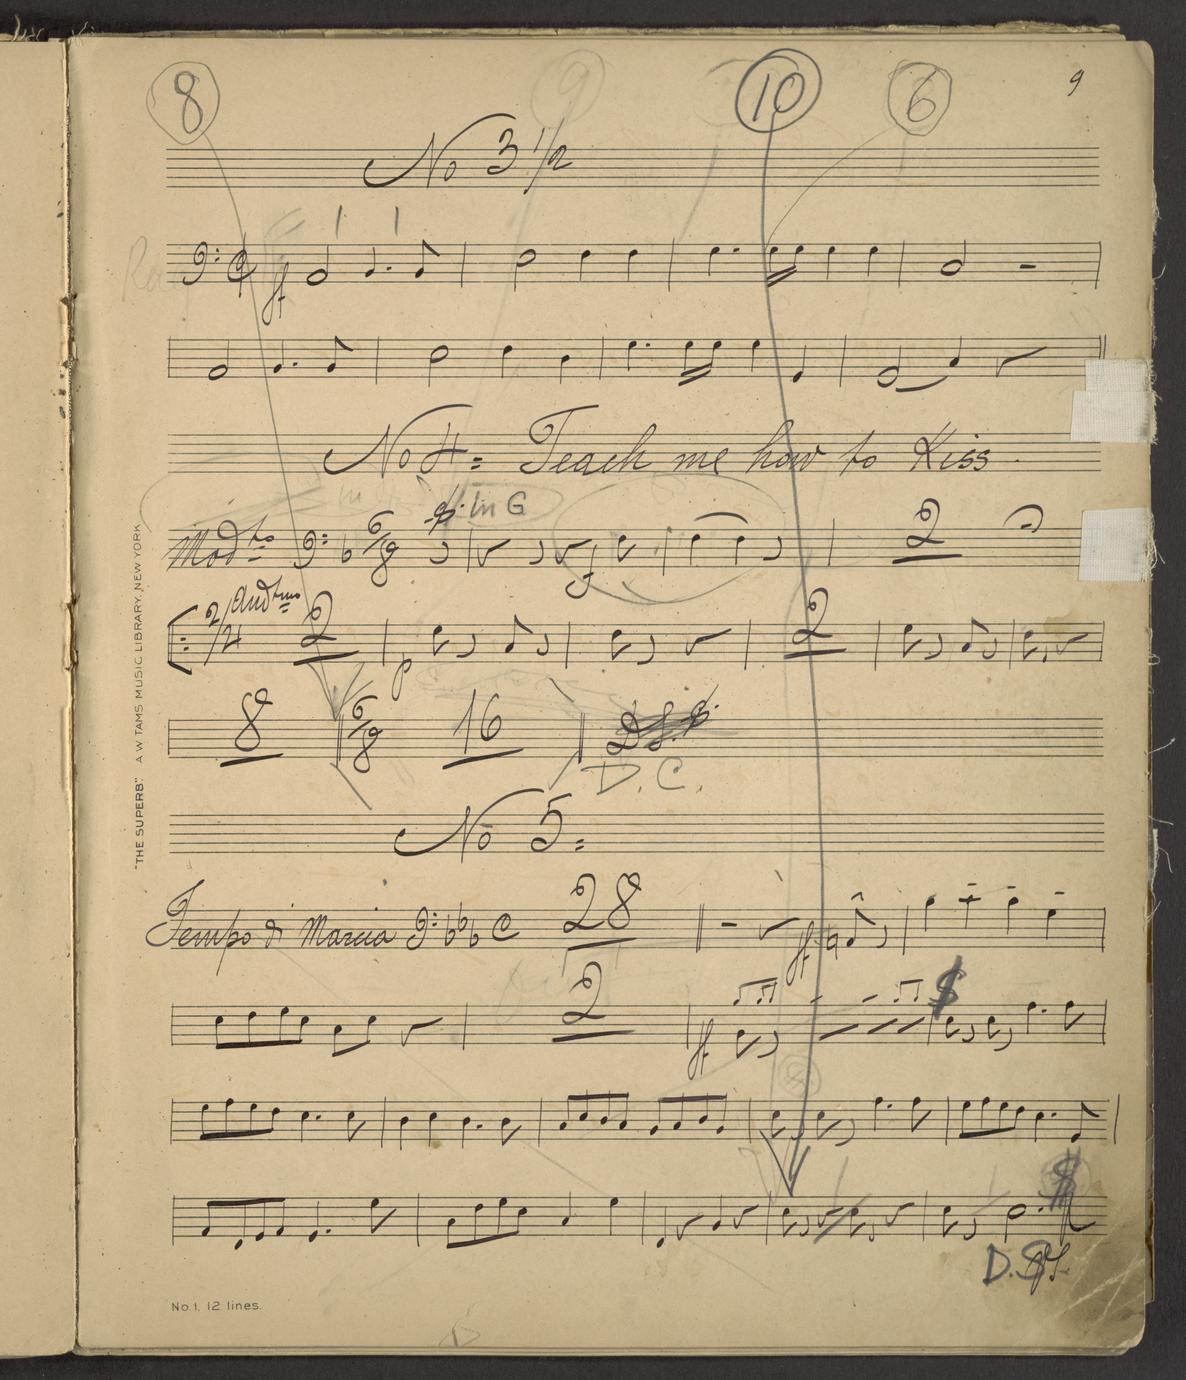 8 9 10 6 9
No 3 1/2
ff
No 4 = Teach me how to Kiss
In G
Modto 6/8 f 2
2/4 Andtino 2 p 2
8 6/8 16 D.S.
D.C.
No 5 =
Tempo di Marcia C 28 ff
2 ff
D.S.
"THE SUPERB". A W TAMS MUSIC LIBRARY, NEW YORK
No 1. 12 lines.